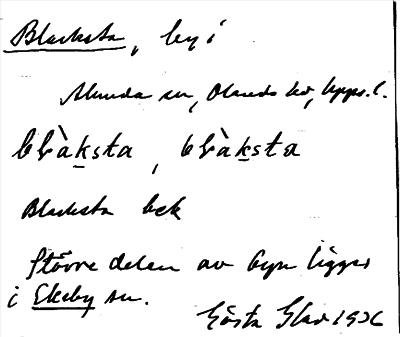 Blacksta, by i
Almunda sn, Olands hd, Upps. l.
blàksta, blàksta
Blacksta bek
större delen av byn ligger
i Ekeby sn.
Gösta Glad 1936